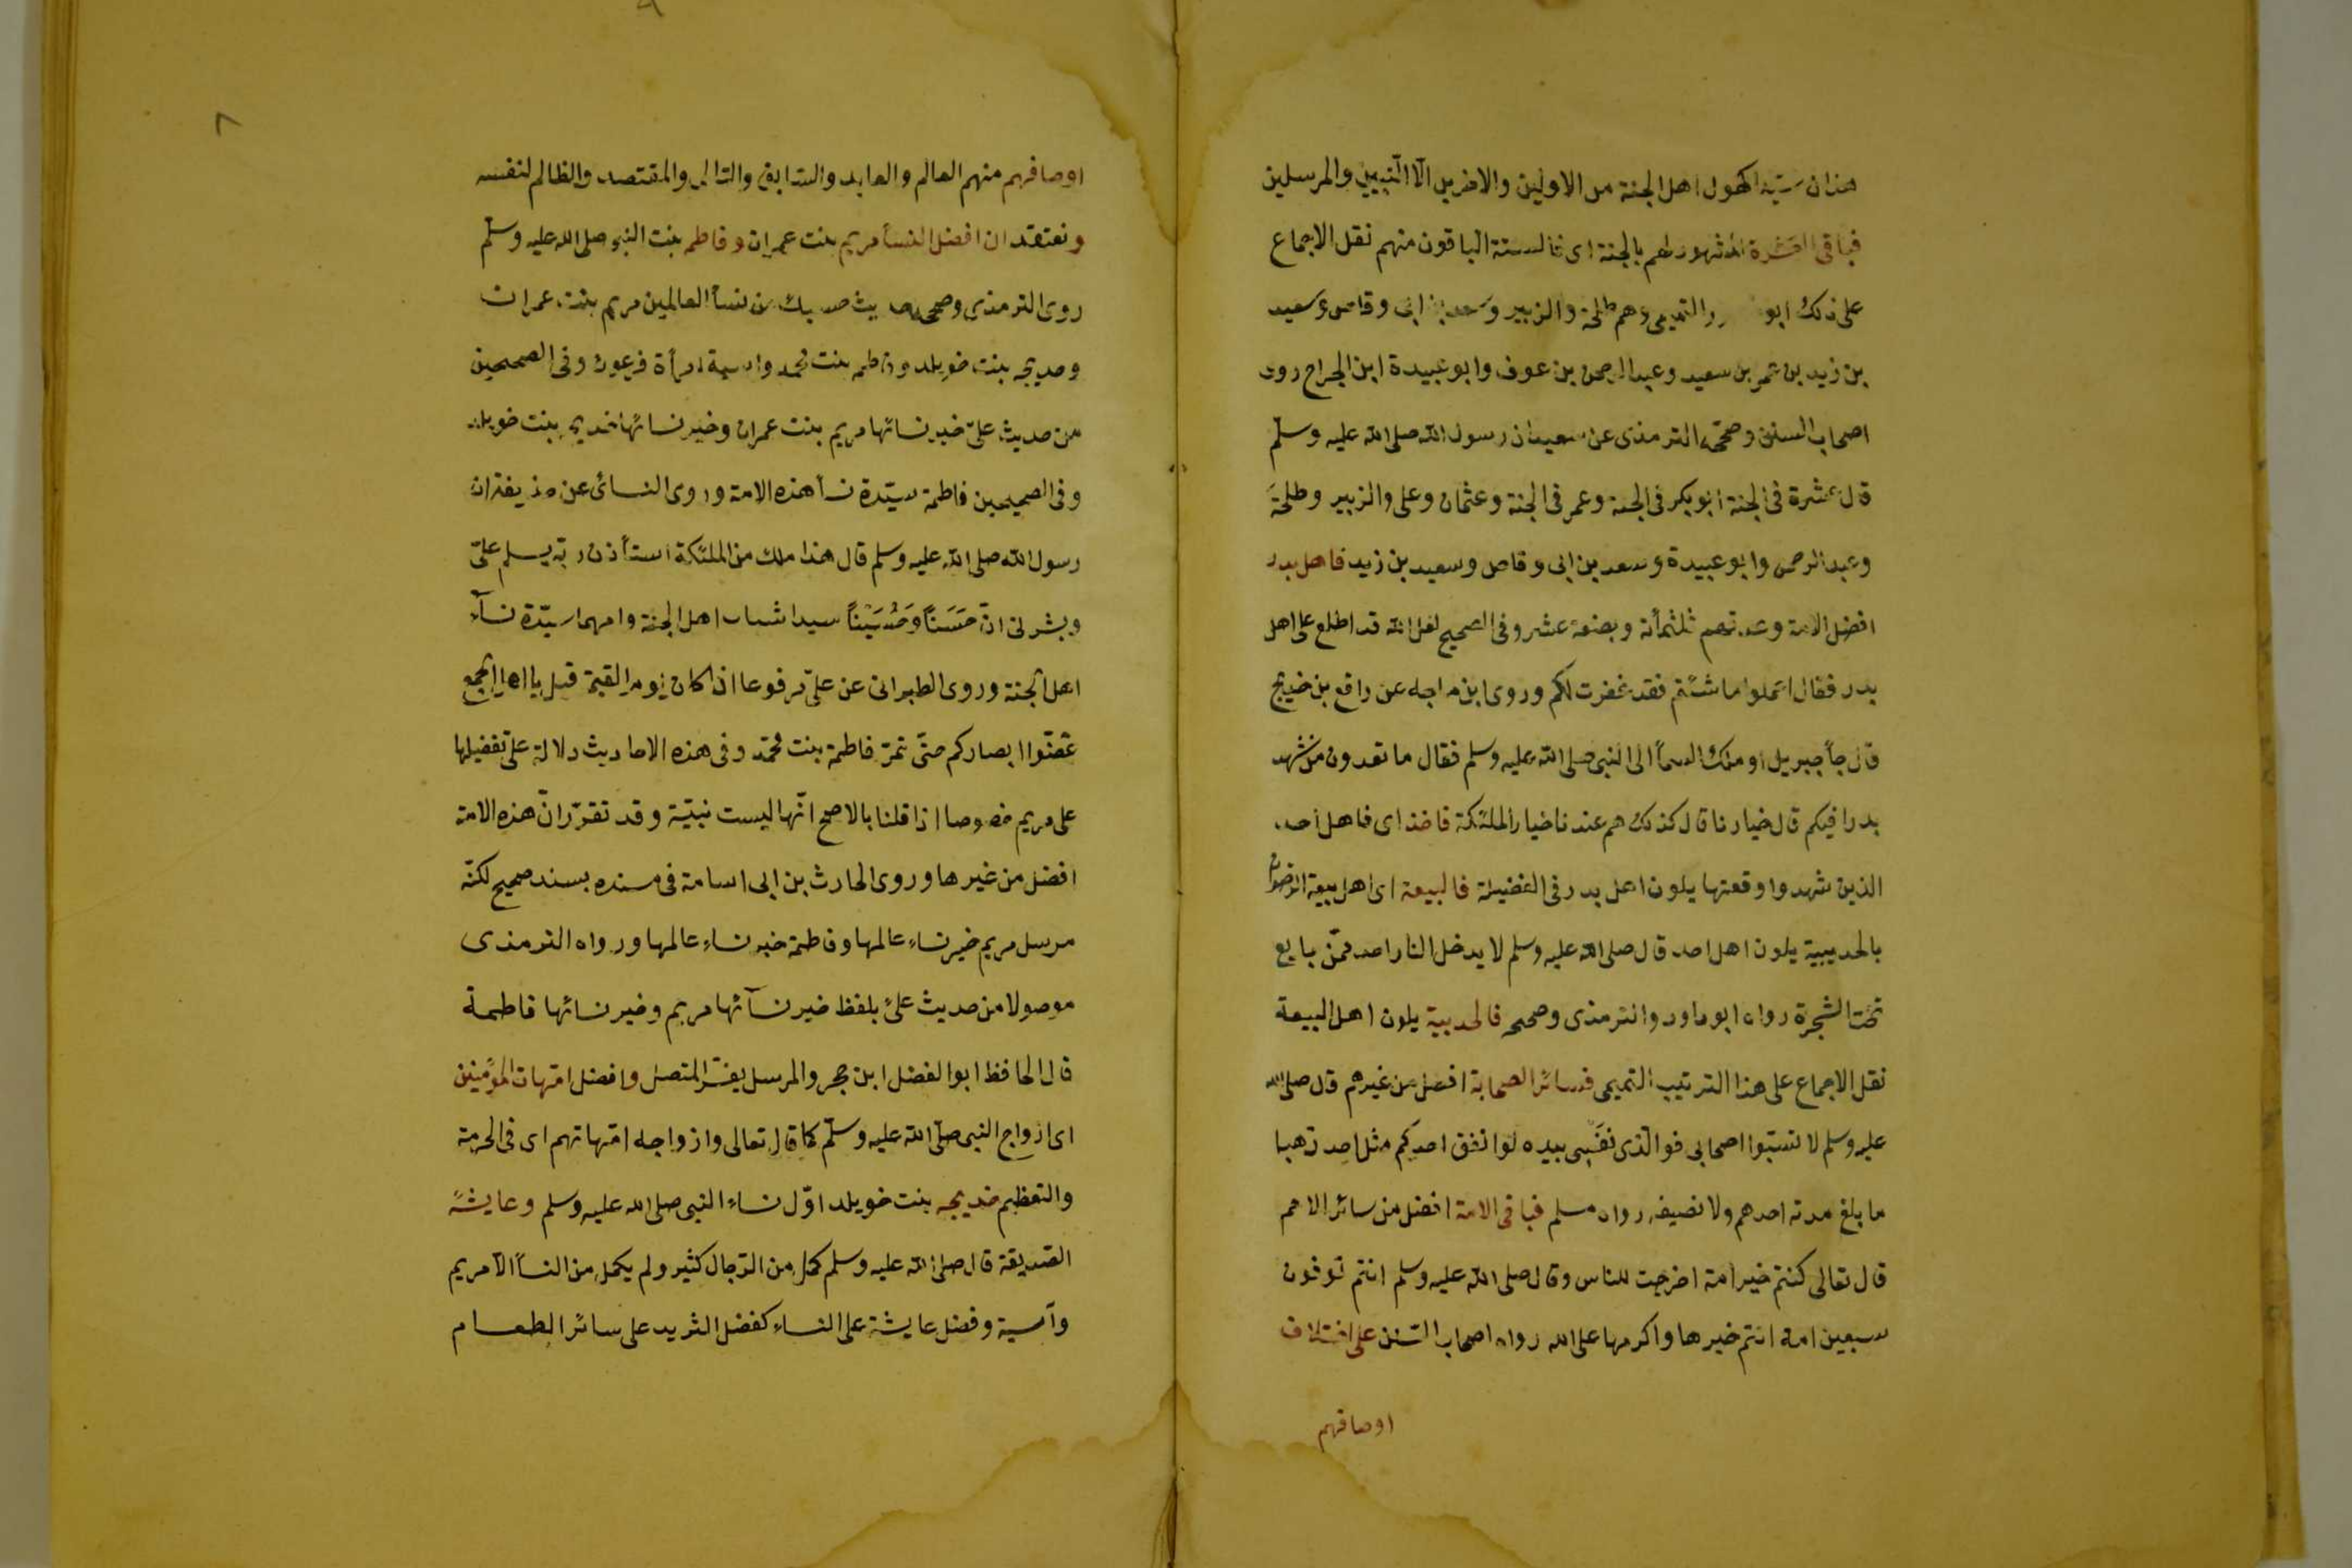 هذان سيدا كهول اهل الجنة من الاولين والاخرين الا النبيين والمرسلين
فباقى العشرة المشهود لهم بالجنة اى فالستة الباقون منهم نقل الاجماع
على ذلك ابو التميمى وهم طلحة والزبير وسعد بن ابى وقاص وسعيد
بن زيد بن عمر بن سعيد وعبد الرحمن بن عوف وابو عبيدة ابن الجراح روى
اصحاب السنن وصححه الترمذى عن سعيد ان رسول الله صلى الله عليه وسلم
قال عشرة فى الجنة ابو بكر فى الجنة وعمر فى الجنة وعثمان وعلى والزبير وطلحة
وعبد الرحمن وابو عبيدة وسعد بن ابى وقاص وسعيد بن زيد فاهل بدر
افضل الامة وعدتهم ثلثمأئة وبضعة عشر وفى الصحيح لعل الله قد اطلع على اهل
بدر فقال اعملوا ما شئتم فقد غفرت لكم وروى ابن ماجه عن رافع بن خديج
قال جأ جبريل او ملك السمأ الى النبى صلى الله عليه وسلم فقال ما تعدون من شهد
بدرا فيكم قال خيارنا قال كذلك هم عندنا خيار الملئكة فاحد اى فاهل احد
الذين شهدوا وقعتها يلون اهل بدر فى الفضيلة فالبيعة اى اهل بيعة الرضوان
بالحديبية يلون اهل احد قال صلى الله عليه وسلم لا يدخل النار احد ممّن بايع
تحت الشجرة رواه ابو داود والترمذى وصححه فالحديبية يلون اهل البيعة
نقل الاجماع على هذا الترتيب التميمى فسائر الصحابة افضل من غيرهم قال صلى الله
عليه وسلم لا تسبّوا اصحابى فو الّذى نفسى بيده لو انفق احدكم مثل احد ذهبا
ما بلغ مدته احدهم ولا نصيفه رواه مسلم فباقى الامة افضل من سائر الامم
قال تعالى كنتم خير امة اخرجت للناس وقال صلى الله عليه وسلم انتم توفون
سبعين امة انتم خيرها واكرمها على الله رواه اصحاب السّنن على اختلاف
اوصافهم
٨
اوصافهم منهم العالم والعابد والسّابق والتالى والمقتصد والظالم لنفسه
ونعتقد ان افضل النسأ مريم بنت عمران وفاطمه بنت النبى صلى الله عليه وسلّم
روى الترمذى وصححه حديث حسبك من نسأ العالمين مريم بنت عمران
وخديجه بنت خويلد وفاطمه بنت محمد واسية امرأة فرعون وفى الصحيحين
من حديث علىّ خير نسائها مريم بنت عمران وخير نسائها خديجه بنت خويلد
وفى الصحيحين فاطمة سيّدة نسأ هذه الامة وروى النسائى عن حذيفة ان
رسول الله صلى الله عليه وسلم قال هذا ملك من الملئكة استأذن ربّه يسلم علىّ
وبشرنى انّ حَسَناً وحُسَيْناً سيدا شباب اهل الجنة وامهما سيّدة نسآء
اهل الجنة وروى الطبرانى عن علىّ مرفوعا اذا كان يوم القيمة قيل يا اهل الجمع
غضّوا ابصاركم حتّى تمرّ فاطمة بنت محمّد وفى هذه الاحاديث دلالة على تفضيلها
على مريم خصوصا اذا قلنا بالاصح انّها ليست نبيّة وقد تقرّر انّ هذه الامة
افضل من غيرها وروى الحارث بن ابى اسامة فى مسنده بسند صحيح لكنّه
مرسل مريم خير نساء عالمها وفاطمة خير نساء عالمها ورواه الترمذى
موصولا من حديث علىّ بلفظ خير نسآئها مريم وخير نسائها فاطمة
قال الحافظ ابو الفضل ابن حجر والمرسل يفسّر المتصل وافضل امّهات المؤمنين
اى ازواج النبى صلّى الله عليه وسلّم كما قال تعالى وازواجه امّهاتهم اى فى الحرمة
والتعظيم خديجه بنت خويلد اوّل نساء النبى صلى الله عليه وسلم وعايشة
الصّديقة قال صلى الله عليه وسلم كمل من الرّجال كثير ولم يكمل من النسأ الّا مريم
وآسية وفضل عايشة على النساء كفضل الثريد على سائر الطعام